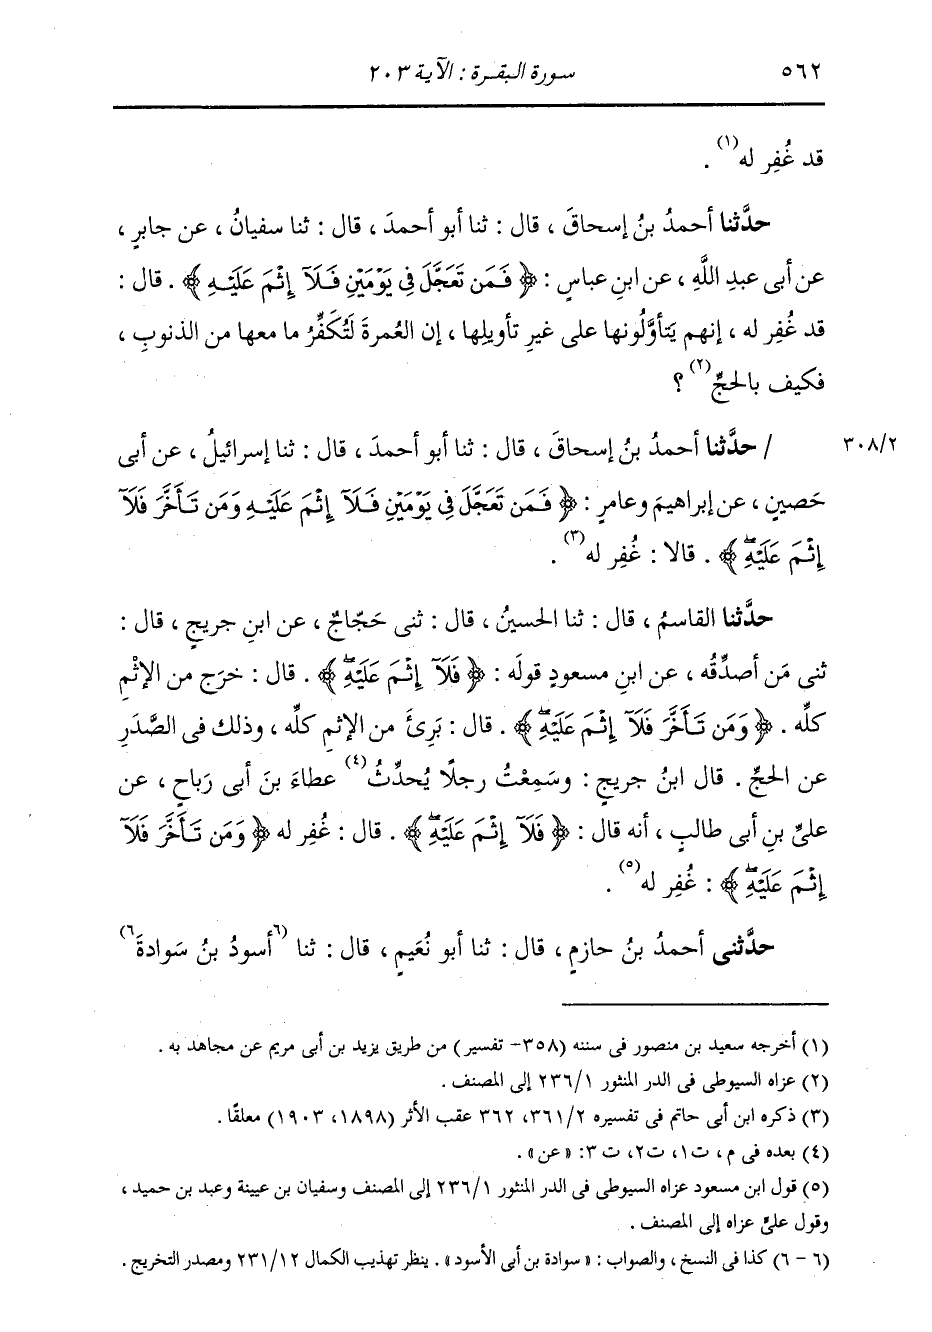 ٥٦٢ سورة البقرة : الآية ٢٠٣
قد غُفِر له(١) .
حدَّثنا أحمدُ بنُ إسحاقَ ، قال : ثنا أبو أحمدَ ، قال : ثنا سفيانُ ، عن جابرٍ ،
عن أبى عبدِ اللَّهِ ، عن ابنِ عباسٍ : ﴿ فَمَن تَعَجَّلَ فِي يَوْمَيْنِ فَلَآ إِثْمَ عَلَيْهِ ﴾ . قال :
قد غُفِر له ، إنهم يَتأوَّلُونها على غيرِ تأويلِها ، إن العُمرةَ لَتُكَفِّرُ ما معها من الذنوبِ ،
فكيف بالحجِّ(٢) ؟
٣٠٨/٢ / حدَّثنا أحمدُ بنُ إسحاقَ ، قال : ثنا أبو أحمدَ ، قال : ثنا إسرائيلُ ، عن أبى
حَصينٍ ، عن إبراهيمَ وعامرٍ : ﴿ فَمَن تَعَجَّلَ فِي يَوْمَيْنِ فَلَآ إِثْمَ عَلَيْهِ وَمَن تَأَخَّرَ فَلَآ
إِثْمَ عَلَيْهِۖ ﴾ . قالا : غُفِر له(٣) .
حدَّثنا القاسمُ ، قال : ثنا الحسينُ ، قال : ثنى حَجّاجٌ ، عن ابنِ جريجٍ ، قال :
ثنى مَن أصدِّقُه ، عن ابنِ مسعودٍ قولَه : ﴿ فَلَآ إِثْمَ عَلَيْهِۖ ﴾ . قال : خرَج من الإثْمِ
كلِّه . ﴿ وَمَن تَأَخَّرَ فَلَآ إِثْمَ عَلَيْهِۖ ﴾ . قال : بَرِئَ من الإثمِ كلِّه ، وذلك فى الصَّدَرِ
عن الحجِّ . قال ابنُ جريجٍ : وسَمِعْتُ رجلًا يُحدِّثُ(٤) عطاءَ بنَ أبى رَباحٍ ، عن
علىِّ بنِ أبى طالبٍ ، أنه قال : ﴿ فَلَآ إِثْمَ عَلَيْهِۖ ﴾ . قال : غُفِر له ﴿ وَمَن تَأَخَّرَ فَلَآ
إِثْمَ عَلَيْهِۖ ﴾ : غُفِر له(٥) .
حدَّثنى أحمدُ بنُ حازمٍ ، قال : ثنا أبو نُعَيمٍ ، قال : ثنا (٦أسودُ بنُ سَوادةَ٦)
(١) أخرجه سعيد بن منصور فى سننه (٣٥٨- تفسير) من طريق يزيد بن أبى مريم عن مجاهد به .
(٢) عزاه السيوطى فى الدر المنثور ٢٣٦/١ إلى المصنف .
(٣) ذكره ابن أبى حاتم فى تفسيره ٣٦١/٢، ٣٦٢ عقب الأثر (١٨٩٨، ١٩٠٣) معلقًا .
(٤) بعده فى م ، ت١، ت٢، ت ٣: « عن » .
(٥) قول ابن مسعود عزاه السيوطى فى الدر المنثور ٢٣٦/١ إلى المصنف وسفيان بن عيينة وعبد بن حميد ،
وقول علىٍّ عزاه إلى المصنف .
(٦ - ٦) كذا فى النسخ ، والصواب : « سوادة بن أبى الأسود » . ينظر تهذيب الكمال ٢٣١/١٢ ومصدر التخريج .